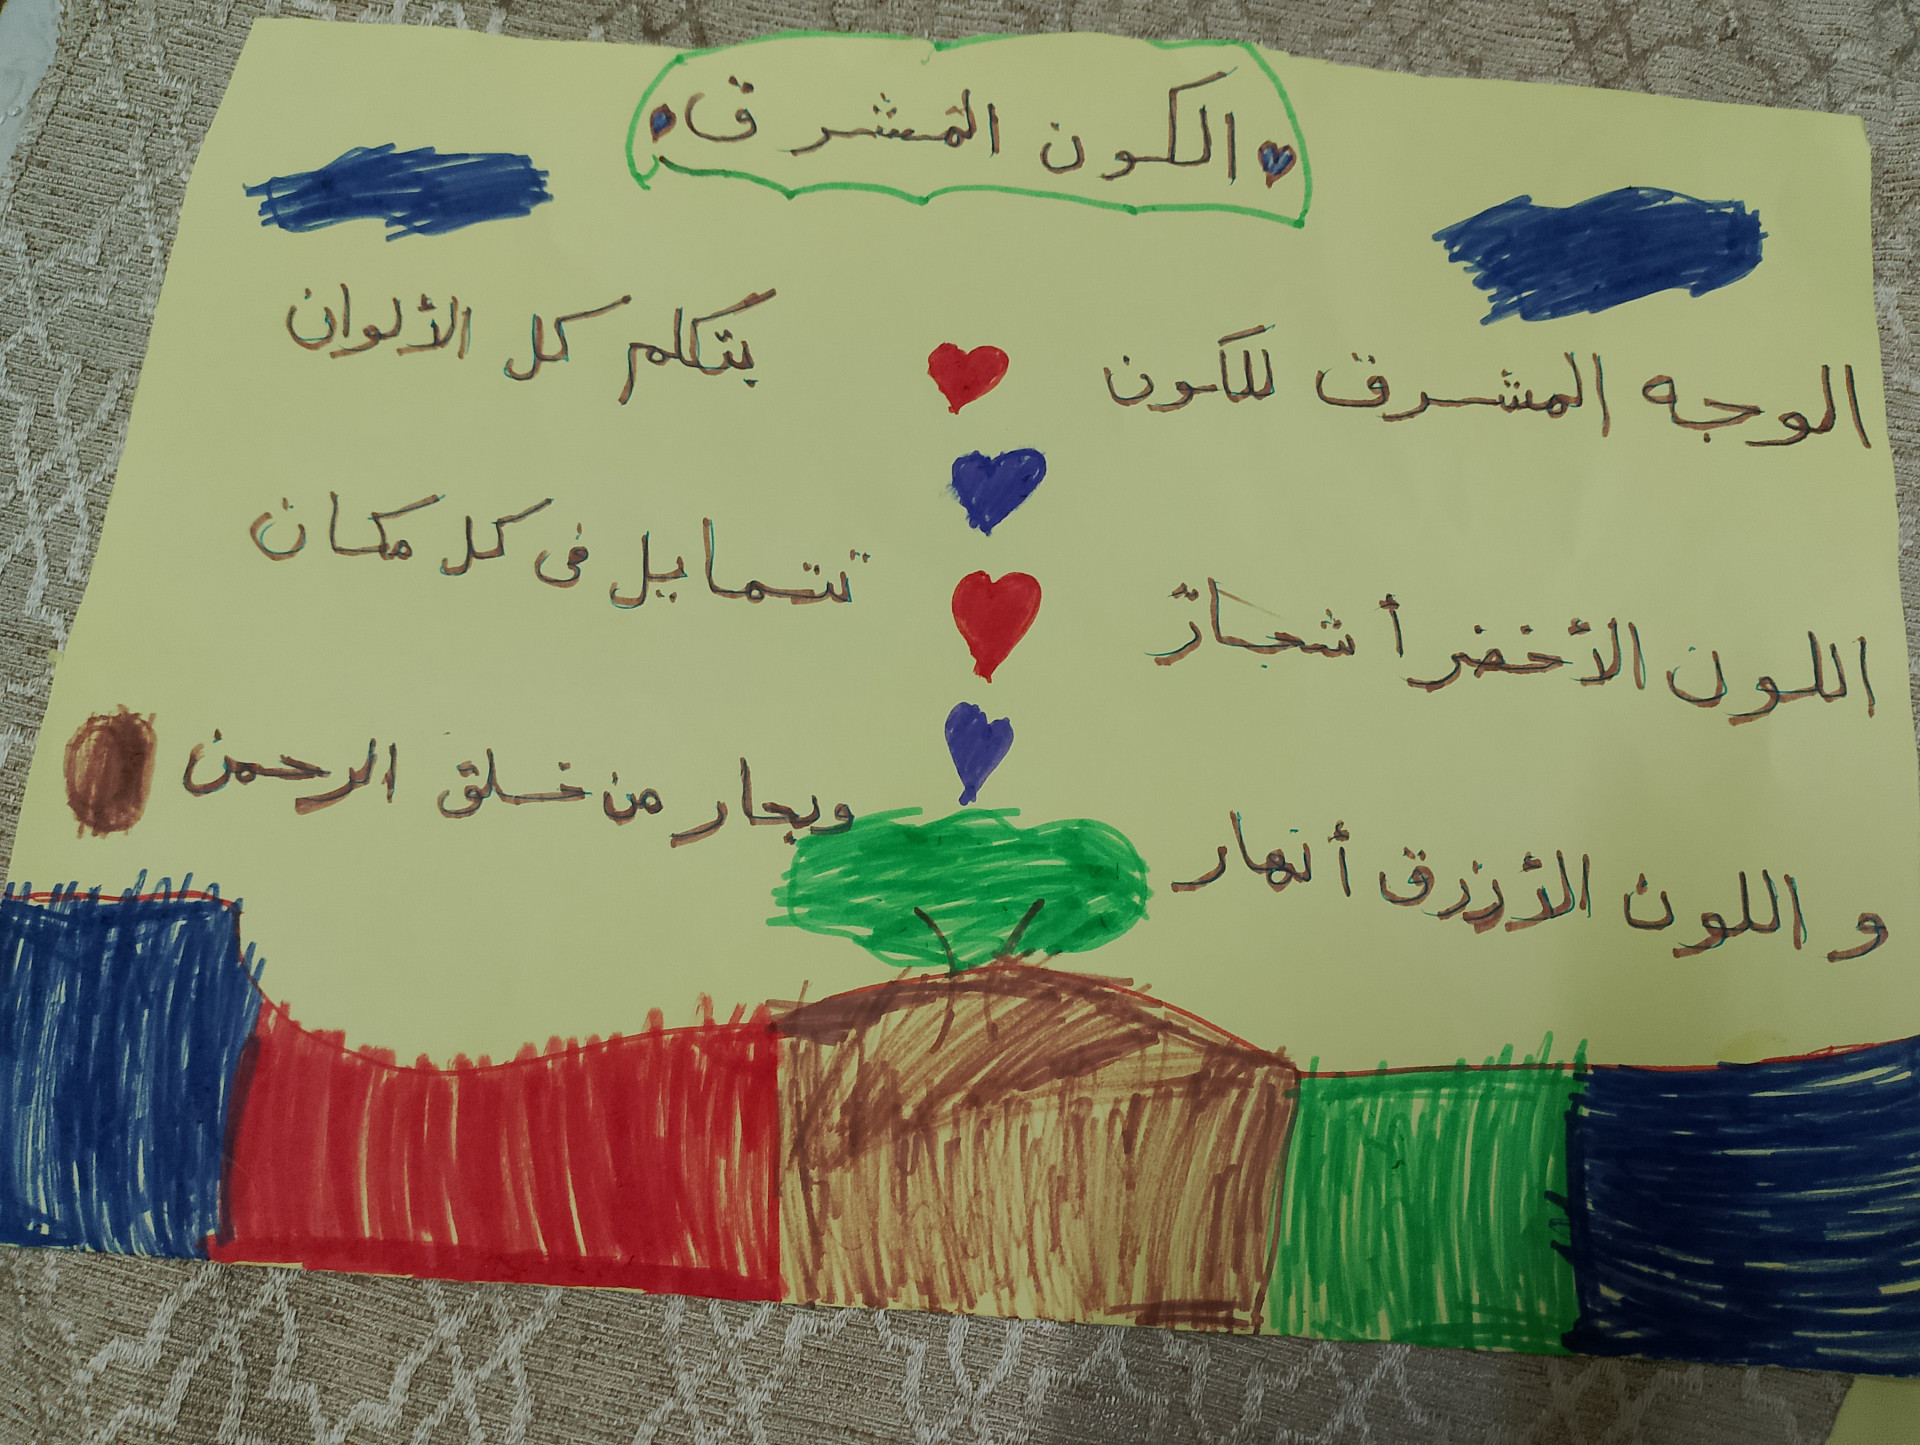 الكون المشرق
الوجه المشرق للكون
بتكلم كل الألوان
اللون الأخضر أشجار
تتمايل في كل مكان
و اللون الأزرق أنهار
وبحار من خلق الرحمن